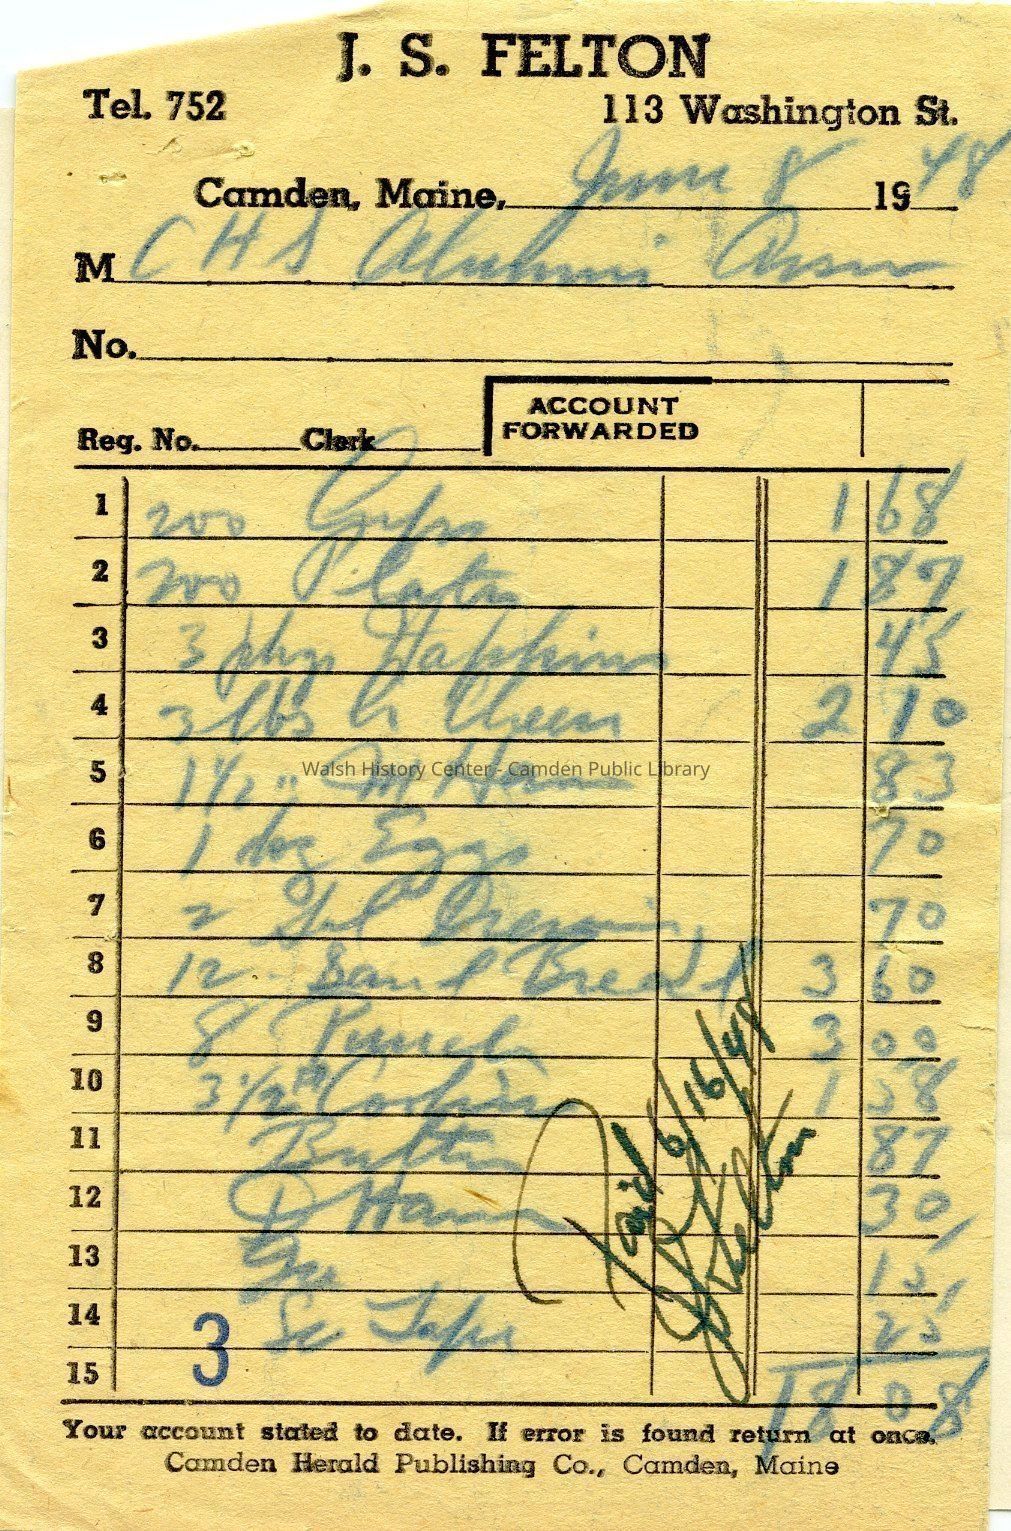 J. S. FELTON
Tel. 752 113 Washington St.
Camden, Maine, June 8 1948
M CHS Alumni Assn
No.
ACCOUNT
FORWARDED
Reg. No. Clerk
1 200 Cups 1 68
2 200 Plates 1 87
3 3 pkgs Napkins 45
4 3 lbs Cheese 2 10
5 1 1/2 " M Ham 83
Walsh History Center - Camden Public Library
6 1 doz Eggs 70
7 2 Sal Dressing 70
8 12 Sand Bread 3 60
9 8 Punch 3 00
10 3 1/2 Cookies 1 58
11 Butter 87
12 D Ham 30
13 15
14 Sc Tape 25
15 18 08
Paid 6/16/48
J S Felton
3
Your account stated to date. If error is found return at once.
Camden Herald Publishing Co., Camden, Maine